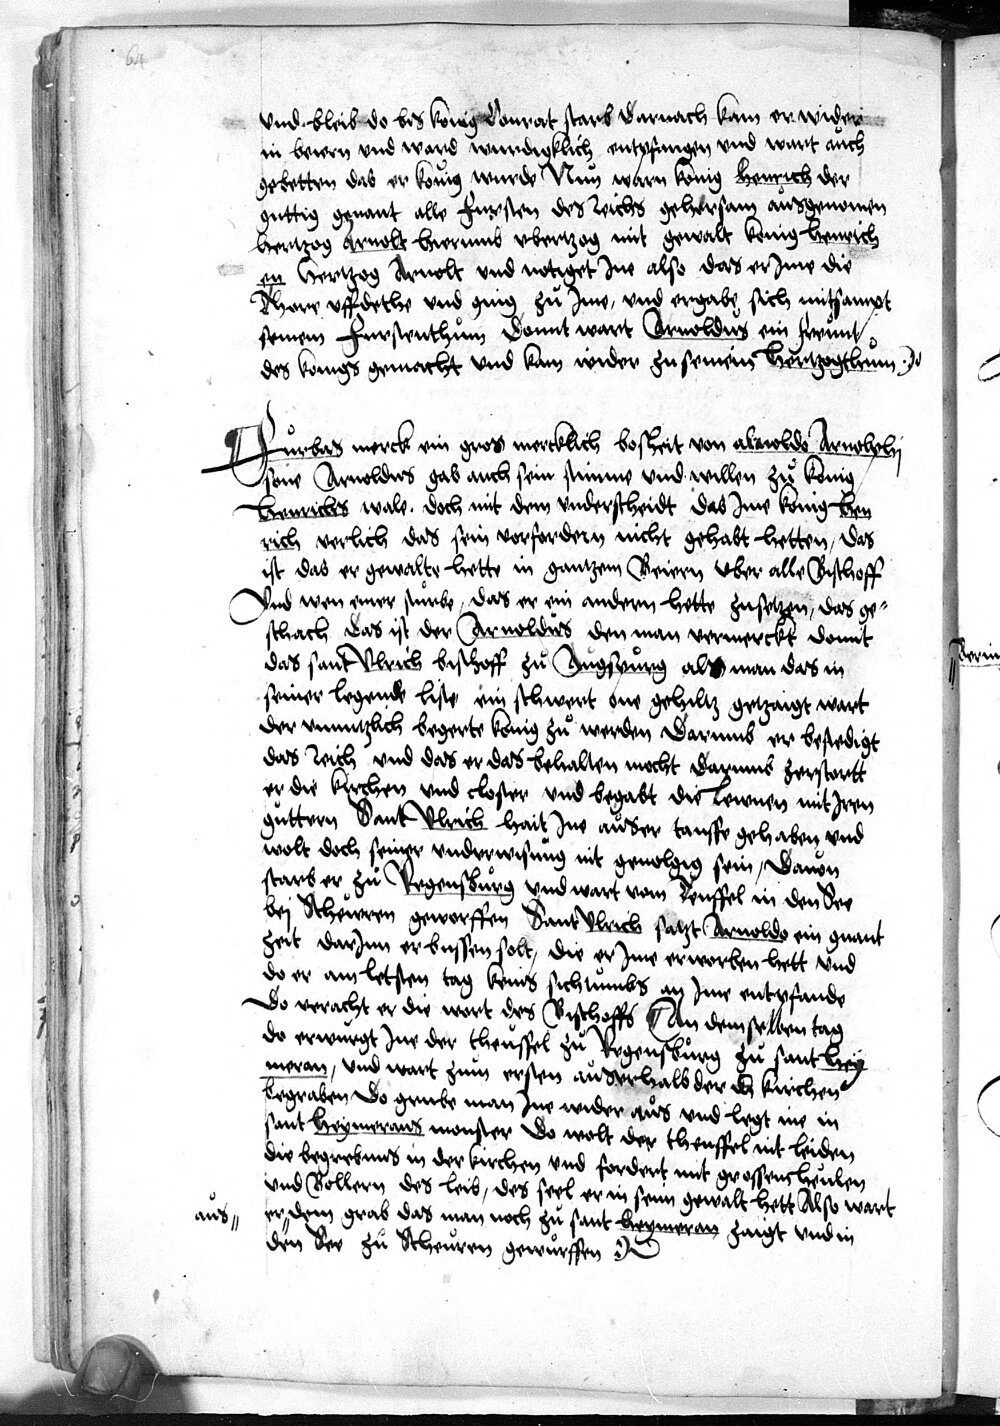 64
vnd bleib do bis konig Conrat starb Darnach kam er wider
in beiern vnd ward wirdigklich entpfangen vnd wart auch
gebetten das er konig wurde Nun warn konig henrich der
guttig genant alle fursten des reichs gehorsam ausgenomen
hertzog Arnolt hierumb vbertzog mit gewalt konig henrich
en hertzog Arnolt vnd notiget Ine also das er Ime die
Thore vffdethe vnd ging zu Ime, vnd ergabe sich mitsampt
seinem furstenthum Domit wart Arnoldus ein freunt
des konigs gemacht vnd kam wider zu seinem hertzogthum
Furbas merck ein gros mercklich bosheit von Arnolphi
sone Arnoldus gab auch sein stimme vnd willen zu konig
henrichs wale. doch mit dem vnderscheidt das Ime konig hen
rich verlich das sein vorfordern nicht gehabt hetten, das
ist das er gewalte hette in gantzem Beiern vber alle Bischoff
Vnd wen einer sturbe, das er ein andern hette zusetzen, das ge-
schach Das ist der Arnoldus den man vermerckt domit
das sant Vlrich bischoff zu Augspurg als man das in
seiner legende liste ein schwert one gehiltz getzaigt wart
der vnnutzlich begerte konig zu werden Darumb er bestedigt
das reich vnd das er das behalten mocht darumb zerstortt
er die kirchen vnd closter vnd begabt die lewen mit Iren
guttern Sant Vlrich hait Ine auser tauffe gehaben vnd
wolt doch seiner vnderwisung nit genolgig sein, Dauon
starb er zu Regensburg vnd wart vom teuffel in den See
bej Scheuren geworffen Sant Vlrich satzt Arnoldo ein gnant
zeit darInn er bussen solt, die er Ime erworben hett vnd
do er am letsten tag keins sichtumbs an Ime entpfande
Do veracht er die wort des Bischoffs An demselben tag
do erwurgt Ine der theuffel zu Regensburg zu sant hey
meran, vnd wart zum ersten auserhalb der kirchen
begraben Do grube man Ine wider aus vnd legt ine in
sant heymerans monster Do wolt der theuffel nit leiden
die begrebnus in der kirchen vnd fordert mit grossen heulen
vnd Bollern des leib, des seel er in seim gewalt hett Also wart
aus" er dem grab das man noch zu sant heymeran zaigt vnd in
den See zu Scheuren gewurffen